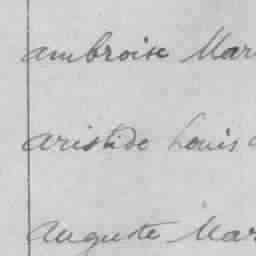 ambroise Mar
aristide Louis
auguste Mar